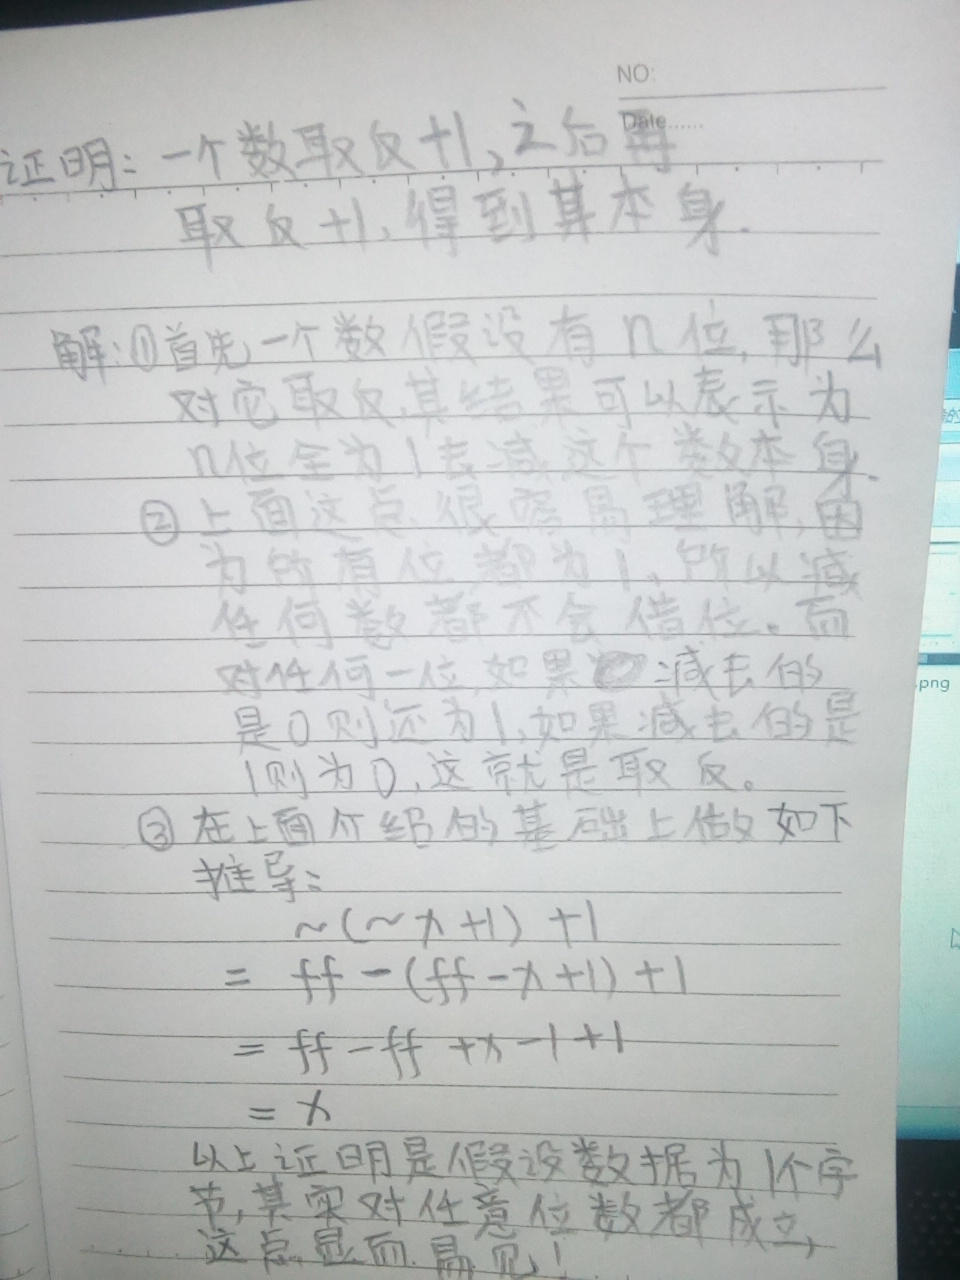 NO:
Date......
证明：一个数取反+1，之后再
取反+1，得到其本身.
解：①首先一个数假设有n位，那么
对它取反，其结果可以表示为
n位全为1去减这个数本身.
②上面这点很容易理解，因
为所有位都为1，所以减
任何数都不会借位。而
对任何一位，如果减去的
是0则还为1，如果减去的是
1则为0，这就是取反。
③在上面介绍的基础上做如下
推导：
~(~x+1)+1
= ff-(ff-x+1)+1
= ff-ff+x-1+1
= x
以上证明是假设数据为1个字
节，其实对任意位数都成立，
这点显而易见！
.png